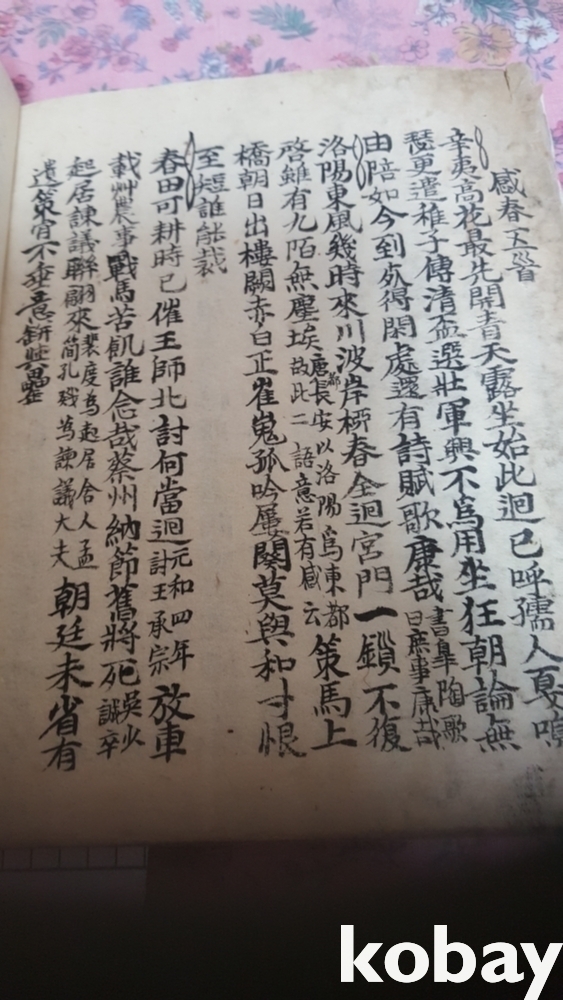 感春五首
辛夷高花最先開靑天露坐始此迴已呼孺人戛鳴
瑟更遣稚子傳清盃選壯軍興不爲用坐狂朝論無
由陪如今到死得閑處還有詩賦歌康哉書臯陶歌曰庶事康哉
洛陽東風幾時來川波岸柳春全迴宮門一鎖不復
啓雖有九陌無塵埃唐都長安以洛陽爲東都故此二語意若有感云策馬上
橋朝日出樓闕赤白正崔嵬孤吟屢闋莫與和寸恨
至短誰能裁
春田可耕時已催王師北討何當迴元和四年討王承宗放車
載草農事戰馬苦飢誰念哉蔡州納節舊將死吳少誠卒
起居諫議聯翩來裴度爲起居舍人孟簡孔戣爲諫議大夫朝廷未省有
遺策肯不垂意
kobay